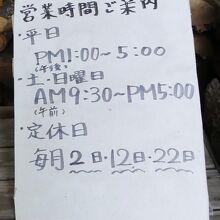 営業時間ご案内
・平日
PM1:00～5:00
(午後)
・土・日曜日
AM9:30~PM5:00
(午前)
・定休日
毎月2日・12日・22日